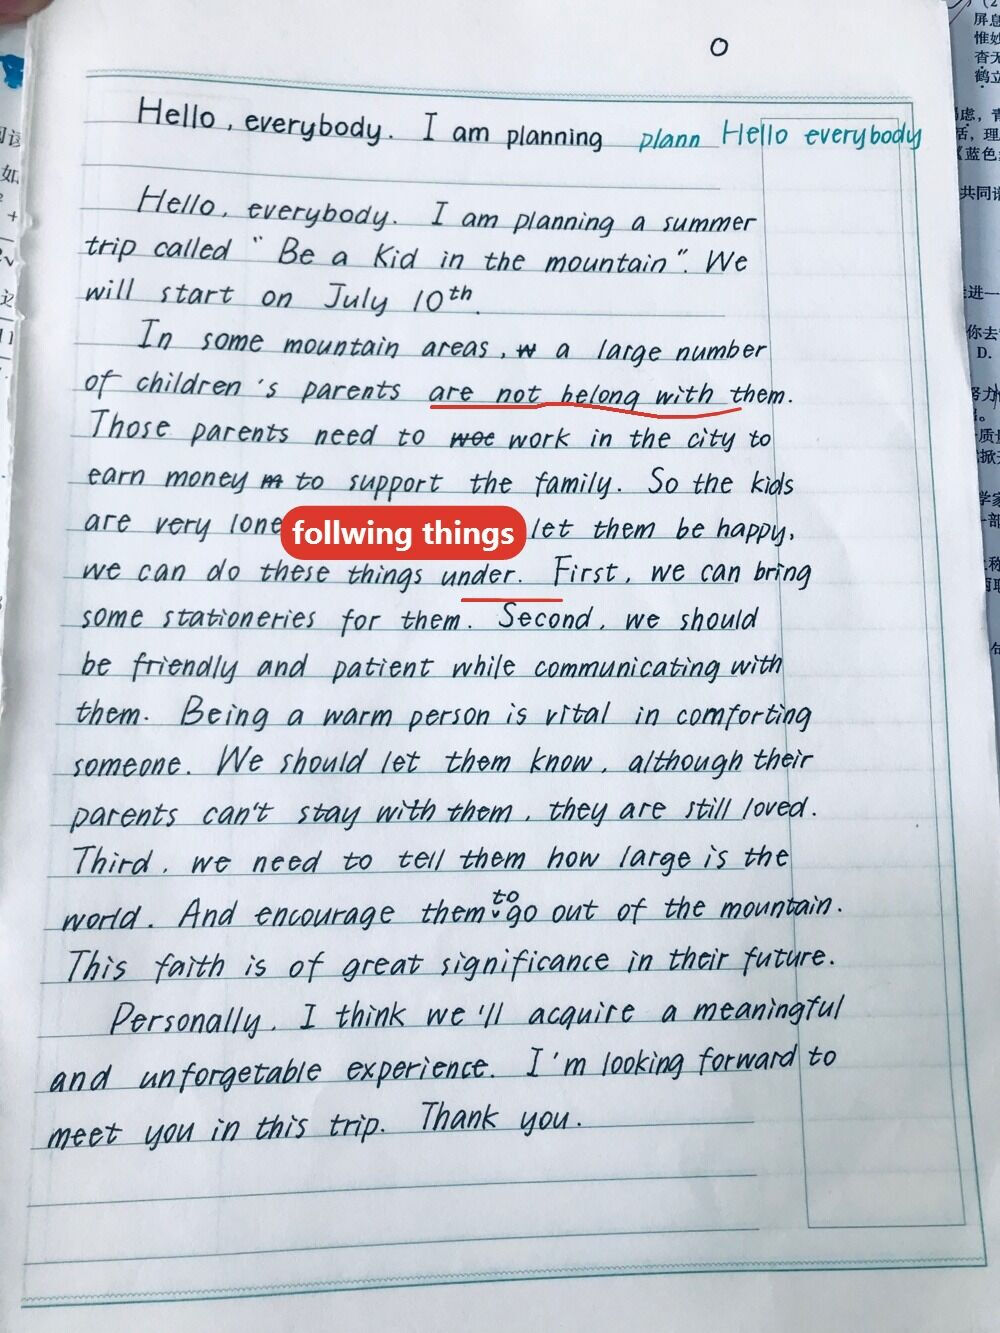 Hello, everybody. I am planning plann Hello everybody
Hello, everybody. I am planning a summer
trip called "Be a Kid in the mountain". We
will start on July 10th.
In some mountain areas, a large number
of children's parents are not belong with them.
Those parents need to work in the city to
earn money to support the family. So the kids
are very follwing things let them be happy,
we can do these things under. First, we can bring
some stationeries for them. Second, we should
be friendly and patient while communicating with
them. Being a warm person is vital in comforting
someone. We should let them know, although their
parents can't stay with them, they are still loved.
Third, we need to tell them how large is the
world. And encourage them to go out of the mountain.
This faith is of great significance in their future.
Personally, I think we'll acquire a meaningful
and unforgetable experience. I'm looking forward to
meet you in this trip. Thank you.